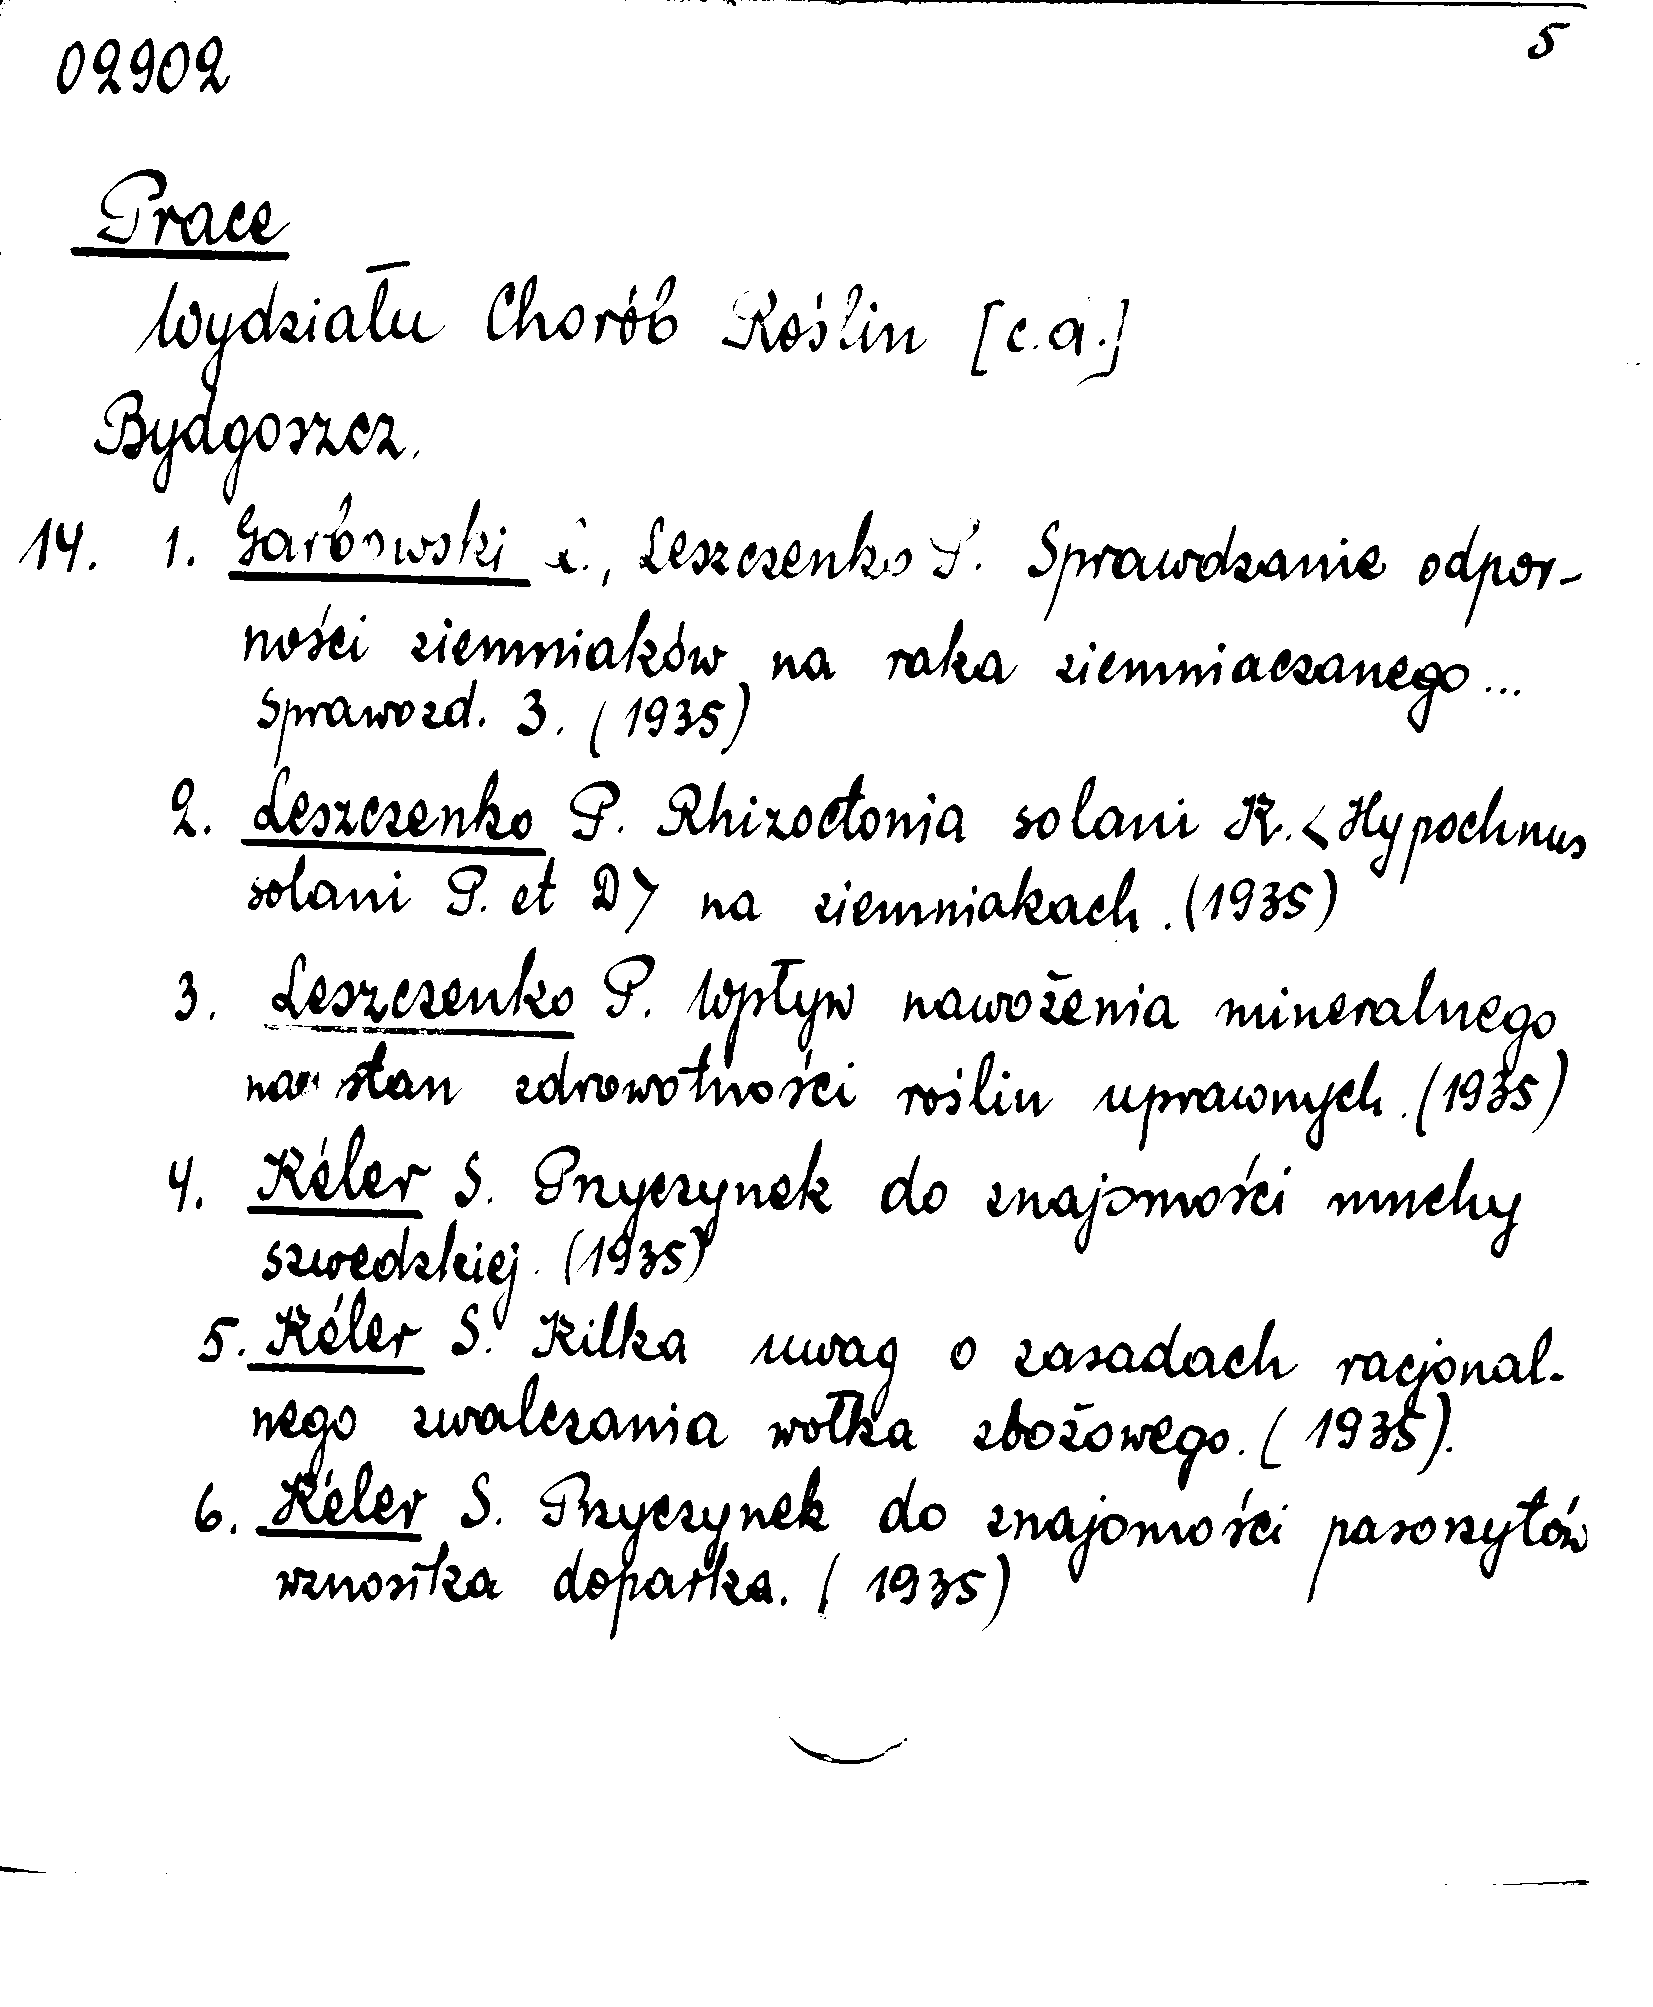 02902
5
Prace
Wydziału Chorób Roślin [c.d.]
Bydgoszcz.
14. 1. Garbowski L., Leszczenko P. Sprawdzanie odpor-
ności ziemniaków na raka ziemniaczanego...
Sprawozd. 3. (1935)
2. Leszczenko P. Rhizoctonia solani K. < Hypochnus
solani P. et D > na ziemniakach. (1935)
3. Leszczenko P. Wpływ nawożenia mineralnego
na stan zdrowotności roślin uprawnych. (1935)
4. Kéler S. Przyczynek do znajomości muchy
szwedzkiej. (1935)
5. Kéler S. Kilka uwag o zasadach racjonal-
nego zwalczania wołka zbożowego. (1935).
6. Kéler S. Przyczynek do znajomości pasorzytów
wznosika doparka. (1935)